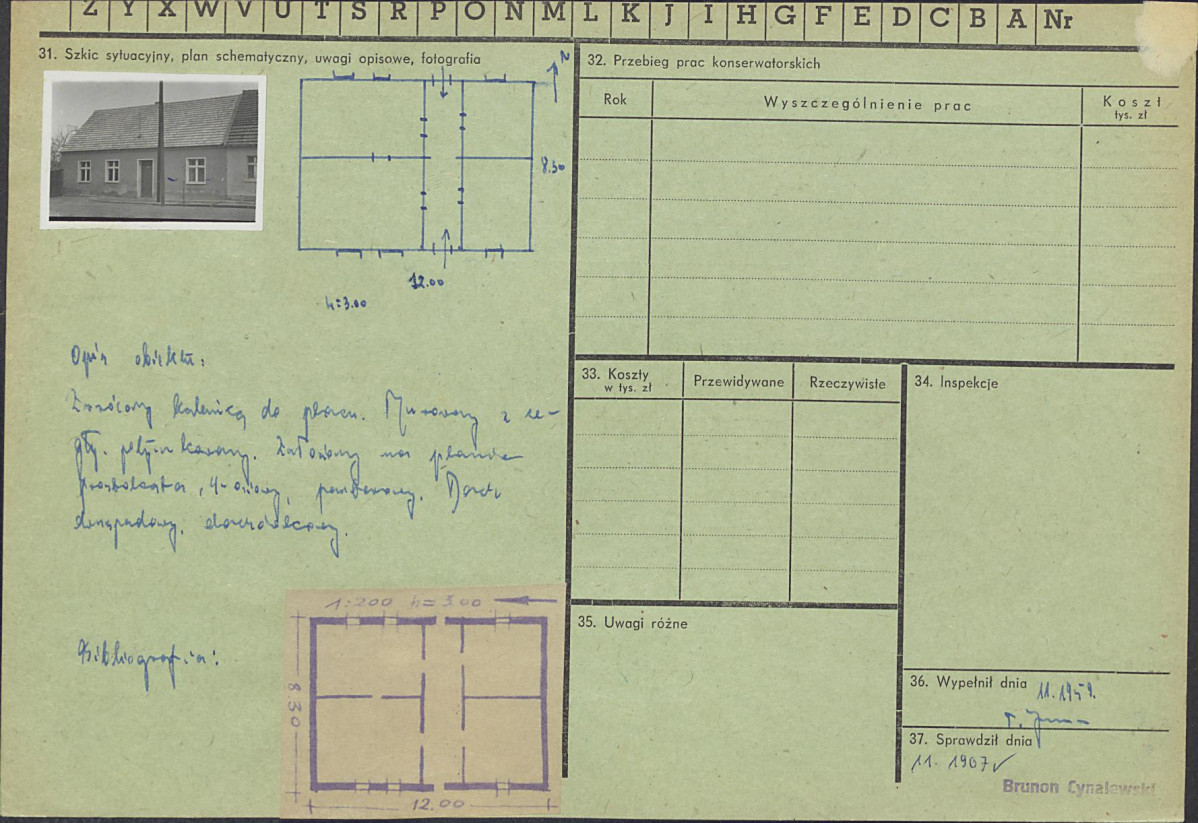 Z Y X W V U T S R P O N M L K J I H G F E D C B A Nr
31. Szkic sytuacyjny, plan schematyczny, uwagi opisowe, fotografia
N
8.30
12.00
h=3.00
Opis obiektu:
Zwrócony kalenicą do placu. Murowany z ce-
gły, potynkowany. Założony na planie
prostokąta, 4-osiowy, parterowy. Dach
dwuspadowy, dachówkowy.
Bibliografia:
1:200 h=3.00
8.30
12.00
32. Przebieg prac konserwatorskich
Rok
Wyszczególnienie prac
Koszt
tys. zł
33. Koszty
w tys. zł
Przewidywane
Rzeczywiste
34. Inspekcje
35. Uwagi różne
36. Wypełnił dnia 11.1959.
37. Sprawdził dnia
11. 1967
Brunon Cynalewski